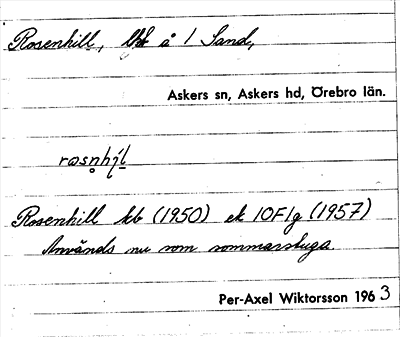 Rosenhill, lht å 1 Sand,
Askers sn, Askers hd, Örebro län.
rosnhil
Rosenhill kb (1950) ek 10F1g (1957)
Används nu som sommarstuga.
Per-Axel Wiktorsson 1963